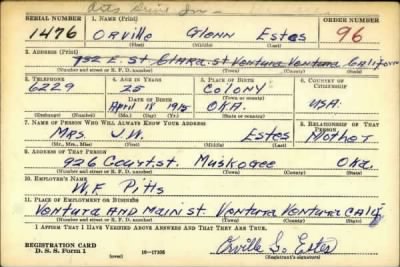 SERIAL NUMBER 1. NAME (Print) ORDER NUMBER
1476 Orville Glenn Estes 96
(First) (Middle) (Last)
2. ADDRESS (Print)
752 E. St. Clara. st Ventura Ventura California
(Number and street or R. F. D. number) (Town) (County) (State)
3. TELEPHONE 4. AGE IN YEARS 5. PLACE OF BIRTH 6. COUNTRY OF CITIZENSHIP
6229 25 Colony
(Town or county)
DATE OF BIRTH
April 18 1915 OKA. USA.
(Exchange) (Number) (Mo.) (Day) (Yr.) (State or country)
7. NAME OF PERSON WHO WILL ALWAYS KNOW YOUR ADDRESS 8. RELATIONSHIP OF THAT PERSON
Mrs. J.W. Estes Mother
(Mr., Mrs., Miss) (First) (Middle) (Last)
9. ADDRESS OF THAT PERSON
926 Court.st. Muskogee Oka.
(Number and street or R. F. D. number) (Town) (County) (State)
10. EMPLOYER'S NAME
W.F. Pitts
11. PLACE OF EMPLOYMENT OR BUSINESS
Ventura and Main st. Ventura Ventura Calif
(Number and street or R. F. D. number) (Town) (County) (State)
I AFFIRM THAT I HAVE VERIFIED ABOVE ANSWERS AND THAT THEY ARE TRUE.
REGISTRATION CARD
D. S. S. Form 1 16—17105 (over) Orville G. Estes
(Registrant's signature)